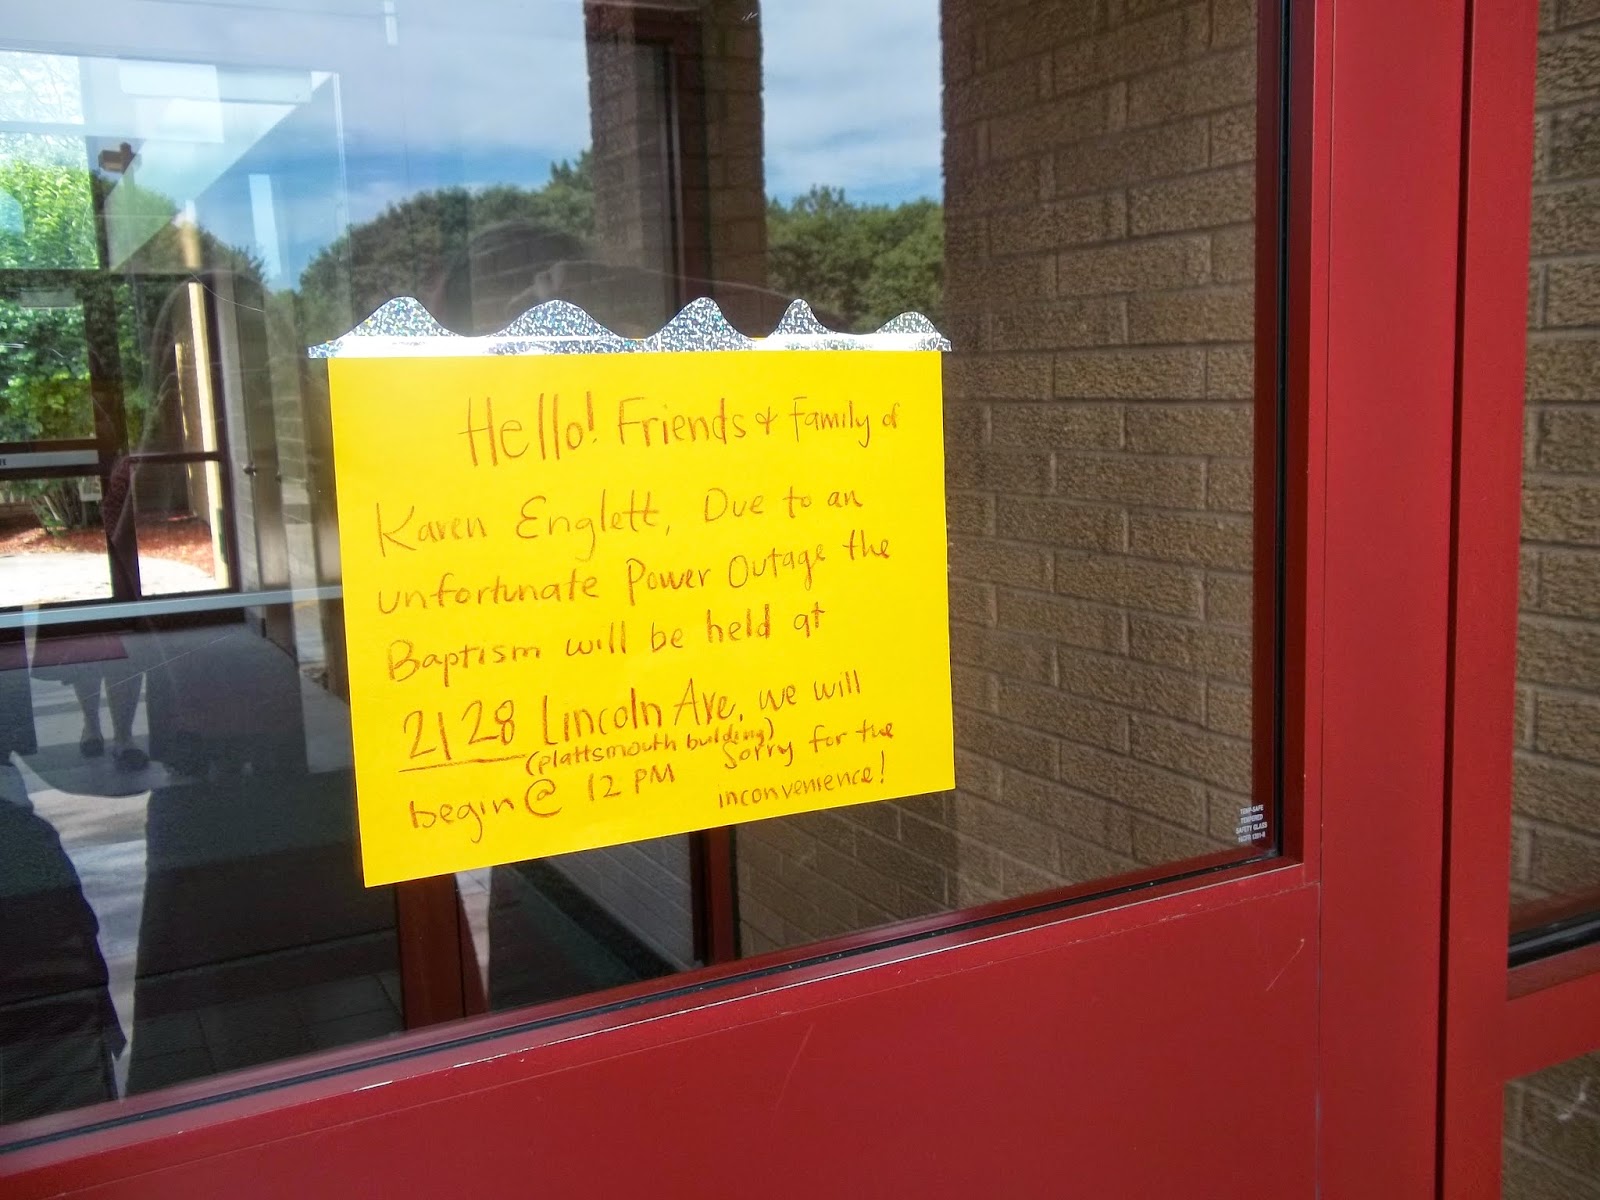 Hello! Friends & Family of
Karen Englett, Due to an
unfortunate Power Outage the
Baptism will be held at
2128 Lincoln Ave, we will
(plattsmouth building)
begin @ 12 PM Sorry for the
inconvenience!
TEMPERED
SAFETY GLASS